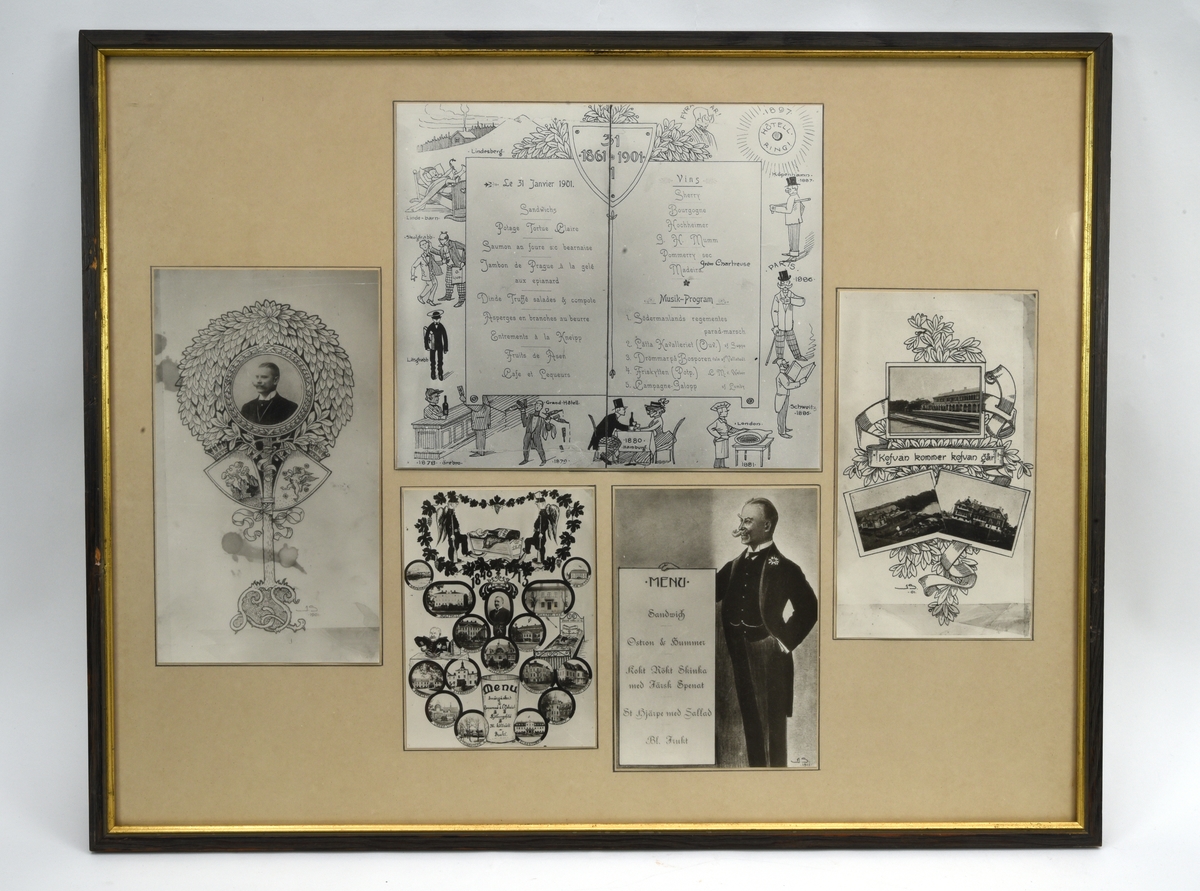 1897
HÔTELL RING!
31
1861 1901
1
Lindesberg
Linde-Barn
Le 31 Janvier 1901.
Sandwichs
Potage Tortue Claire
Saumon au foure en bearnaise
Jambon de Prague à la gelé
aux epienard
Dinde Truffé salades & compote
Asperges en branches au beurre
Entremente à la Kneipp
Fruits de
Cafe et Liqueurs
Vins
Sherry
Bourgogne
Hochheimer
G H Mumm
Pommerry sec
Madeira
Grön Chartreuse
Musik-Program
1. Södermanlands regementes
parad-marsch
2. Lätta Kavalleriet (Ouv.) af Suppé
3. Drömmar på Bosporen
4. Friskytten (Potp.) C. M. v. Weber
5. Champagne Galopp af Lumby
1887
PARIS
1886
Schweitz
1886
London
1881
1880
Hamburg
Grand Hôtell
1879
1878 Örebro
Kofvan kommer kofvan går
1898
Menu
MENU
Sandwich
Ostron & Hummer
Kokt Rökt Skinka
med Färsk Spenat
St Hjärpe med Sallad
Bl. Frukt